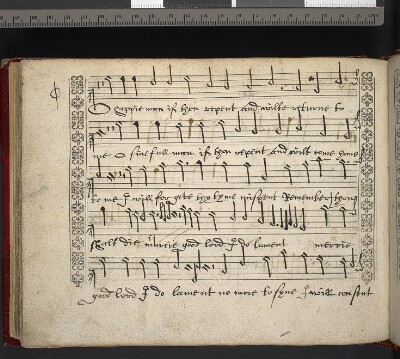 O happie man if thou repent and wilt returne to
me O sinfull man if thou repent and wilt come home
to me I will forgive thy tyme mispent Remember thou
shalt die mercie good lord I do lament mercie
good lord I do lament no more to syne I will consent